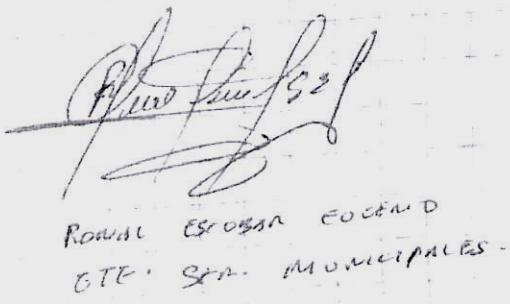 RONAL ESCOBAR EUGENIO
GTE. SER. MUNICIPALES.